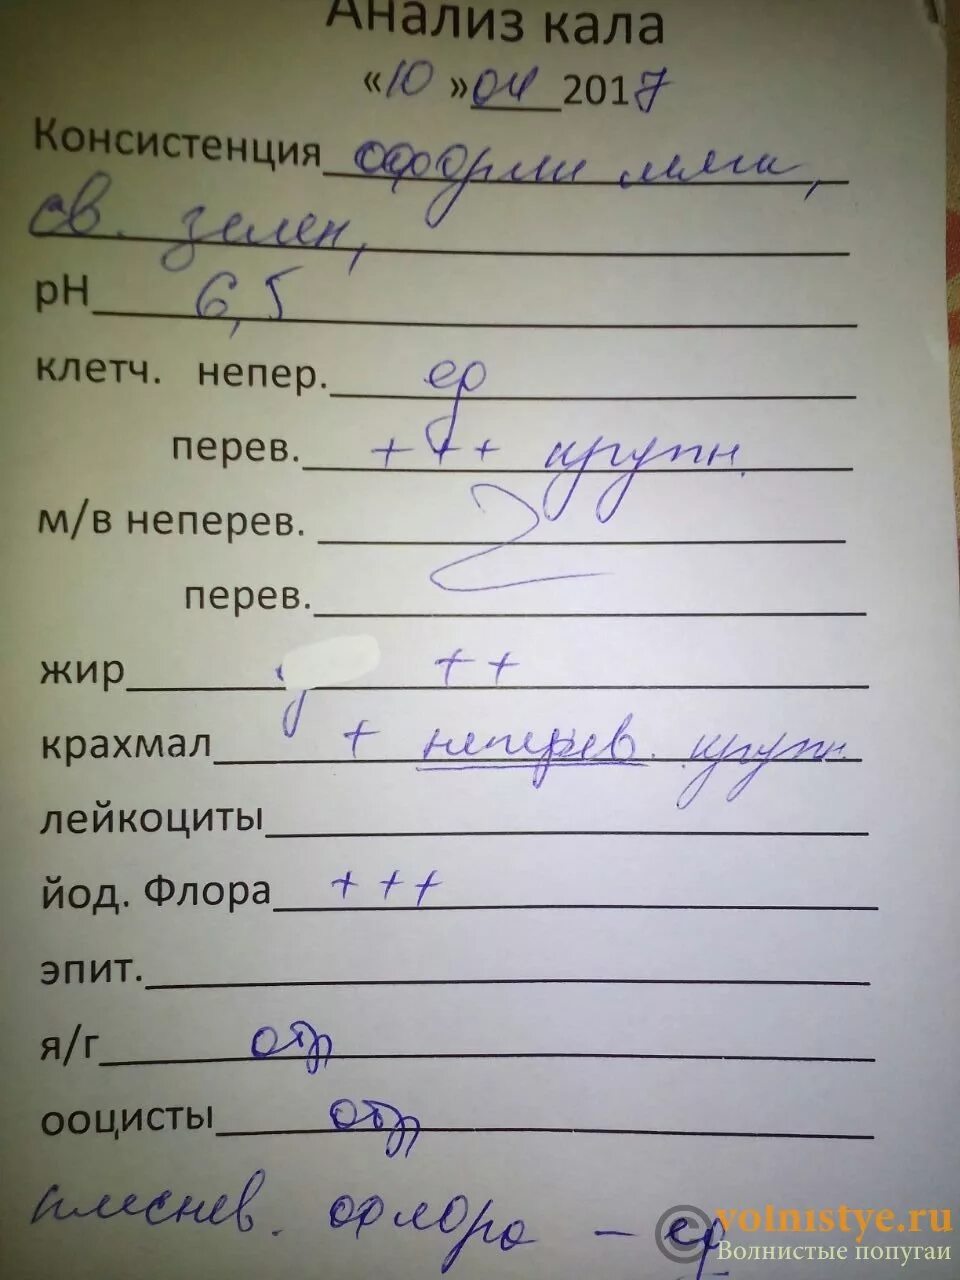 Анализ кала
«10» 04 2017
Консистенция оформл мягк,
св. зелен,
pH 6,5
клетч. непер. ер
перев. +++ крупн.
м/в неперев.
перев.
жир ++
крахмал + неперев. крупн.
лейкоциты
йод. Флора +++
эпит.
я/г отр
ооцисты отр
плеснев. флора – ер
© volnistye.ru
Волнистые попугаи